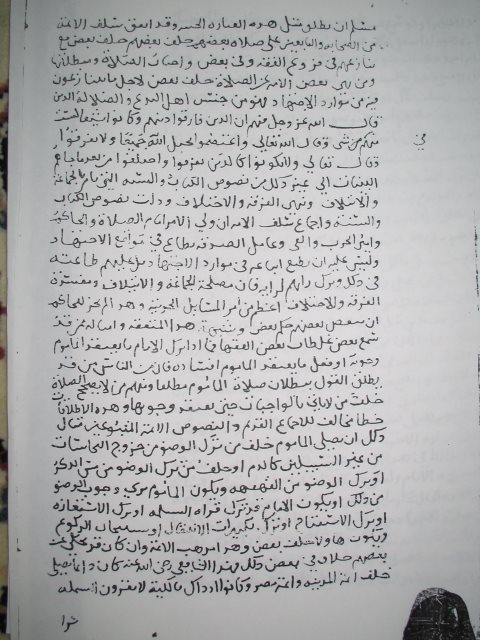 مسلم ان يطلق مثل هذه العبارة وقد اتفق سلف الامة
من الصحابة والتابعين على صلاة بعضهم خلف بعض مع
تنازعهم في فروع الفقه وفي بعض واجبات الصلاة ومبطلاتها
ومن نهى بعض الامة عن الصلاة خلف بعض لاجل ما يتنازعون
فيه من موارد الاجتهاد فهو من جنس اهل البدع والضلالة الذين
قال الله عز وجل فيهم ان الذين فارقوا دينهم وكانوا شيعا لست
منهم في شي وقال الله تعالى واعتصموا بحبل الله جميعا ولا تفرقوا
وقال تعالى ولا تكونوا كالذين تفرقوا واختلفوا من بعد ما جاهم
البينات الى غير ذلك من نصوص الكتاب والسنة التي تامر بالجماعة
والائتلاف وتنهى عن الفرقة والاختلاف ودلت نصوص الكتاب
والسنة واجماع سلف الامة ان ولي الامر امام الصلاة والحاكم
وامير الحرب والفي وعامل الصدقة يطاع في مواضع الاجتهاد
وليس عليه ان يطيع اتباعه في موارد الاجتهاد بل عليهم طاعته
في ذلك وترك رايهم لرايه فان مصلحة الجماعة والائتلاف ومفسدة
الفرقة والاختلاف اعظم من امر المسايل الجزئية ولهذا لم يجز للحاكم
ان ينقض بعضهم حكم بعض
سمع بعض غلطات بعض الفقهاء اذا ترك الامام ما يعتقد الماموم
وجوبه او فعل ما يعتقد الماموم فساده فان من الناس من قد
يطلق القول ببطلان صلاة الماموم مطلقا ومنهم من لا يصحح الصلاة
خلف من لا ياتي بالواجبات حتى يعتقد وجوبها وهذه الاطلاقات
خطا مخالف للاجماع القديم والنصوص
ذلك ان يصلي الماموم خلف من ترك الوضوء من خروج النجاسات
من غير السبيلين كالدم او خلف من ترك الوضوء من مس الذكر
او ترك الوضوء من القهقهه ويكون الماموم يرى وجوب الوضو
من ذلك او يكون الامام قد ترك قراة البسملة او ترك الاستعاذة
او ترك الاستفتاح او ترك تكبيرات الانتقال او تسبيحات الركوع
بعضهم خلاف في بعض ذلك فهذا الشافعي رضي الله عنه كان دائما يصلي
خلف ائمة المدينة وائمة مصر وكانوا اذ ذاك مالكية لا يقرون البسملة